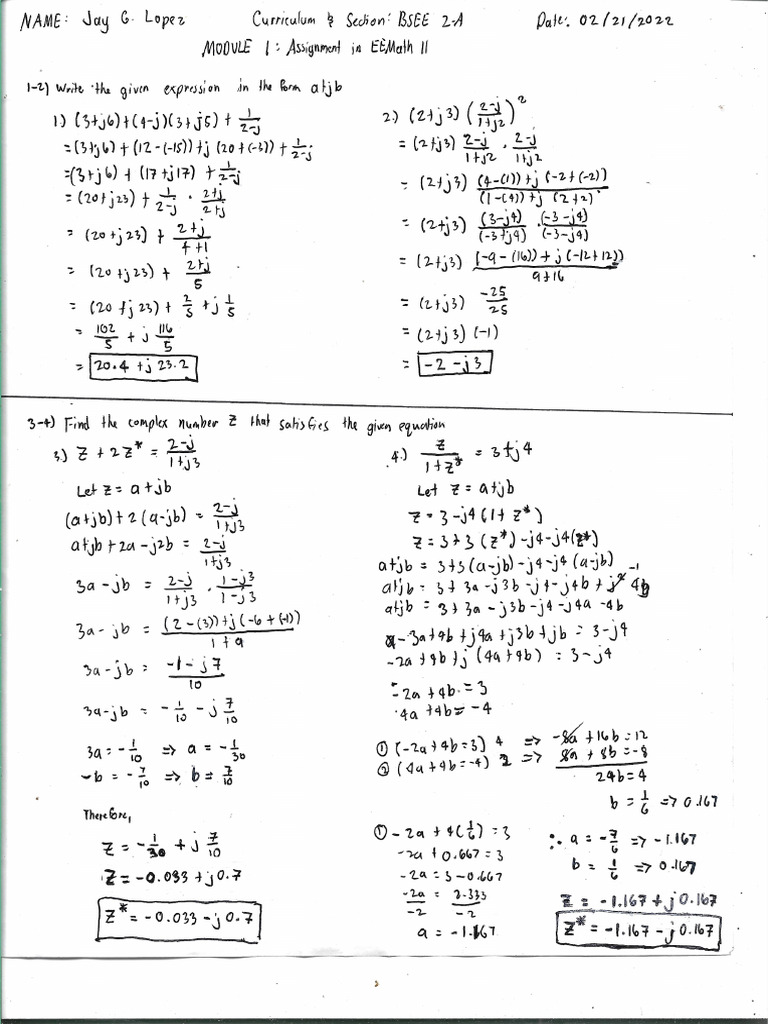 NAME: Jay G. Lopez Curriculum & Section: BSEE 2-A Date: 02/21/2022
MODULE 1: Assignment in EEMath 11
1-2) Write the given expression in the form a+jb
1.) (3+j6)+(4-j)(3+j5) + 1/(2-j)
= (3+j6) + (12-(-15))+j(20+(-3)) + 1/(2-j)
= (3+j6) + (17+j17) + 1/(2-j)
= (20+j23) + 1/(2-j) · (2+j)/(2+j)
= (20+j23) + (2+j)/(4+1)
= (20+j23) + (2+j)/5
= (20+j23) + 2/5 + j 1/5
= 102/5 + j 116/5
= 20.4 + j 23.2
2.) (2+j3) ((2-j)/(1+j2))²
= (2+j3) (2-j)/(1+j2) · (2-j)/(1+j2)
= (2+j3) ((4-(1))+j(-2+(-2)))/((1-(4))+j(2+2))
= (2+j3) (3-j4)/(-3+j4) · (-3-j4)/(-3-j4)
= (2+j3) ((-9-(16))+j(-12+12))/(9+16)
= (2+j3) -25/25
= (2+j3) (-1)
= -2-j3
3-4) Find the complex number Z that satisfies the given equation
3.) Z + 2Z* = (2-j)/(1+j3)
Let Z = a+jb
(a+jb)+2(a-jb) = (2-j)/(1+j3)
a+jb+2a-j2b = (2-j)/(1+j3)
3a-jb = (2-j)/(1+j3) · (1-j3)/(1-j3)
3a-jb = ((2-(3))+j(-6+(-1)))/(1+9)
3a-jb = (-1-j7)/10
3a-jb = -1/10 - j 7/10
3a = -1/10 => a = -1/30
-b = -7/10 => b = 7/10
Therefore,
Z = -1/30 + j 7/10
Z = -0.033 + j0.7
Z* = -0.033 - j0.7
4.) Z/(1+Z*) = 3+j4
Let Z = a+jb
Z = 3-j4(1+Z*)
Z = 3+3(Z*)-j4-j4(Z*)
a+jb = 3+3(a-jb)-j4-j4(a-jb)
a+jb = 3+3a-j3b-j4-j4b+j² 4b -1
a+jb = 3+3a-j3b-j4-j4a-4b
a-3a+4b+j4a+j3b+jb = 3-j4
-2a+4b+j(4a+4b) = 3-j4
-2a+4b = 3
4a+4b = -4
① (-2a+4b=3) 4 => -8a+16b=12
② (4a+4b=-4) 2 => 8a+8b=-8
24b=4
b = 1/6 => 0.167
① -2a+4(1/6) = 3
-2a+0.667 = 3
-2a = 3-0.667
-2a/-2 = 2.333/-2
a = -1.167
∴ a = -7/6 => -1.167
b = 1/6 => 0.167
Z = -1.167 + j0.167
Z* = -1.167 - j0.167